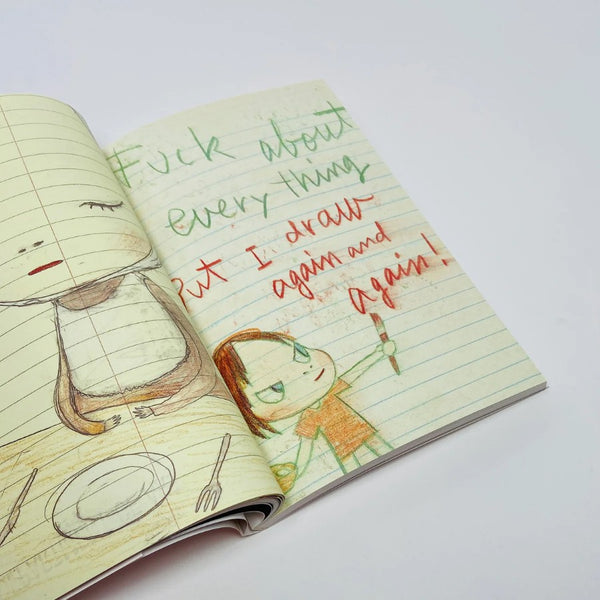 Fuck about
everything
But I draw
again and
again!